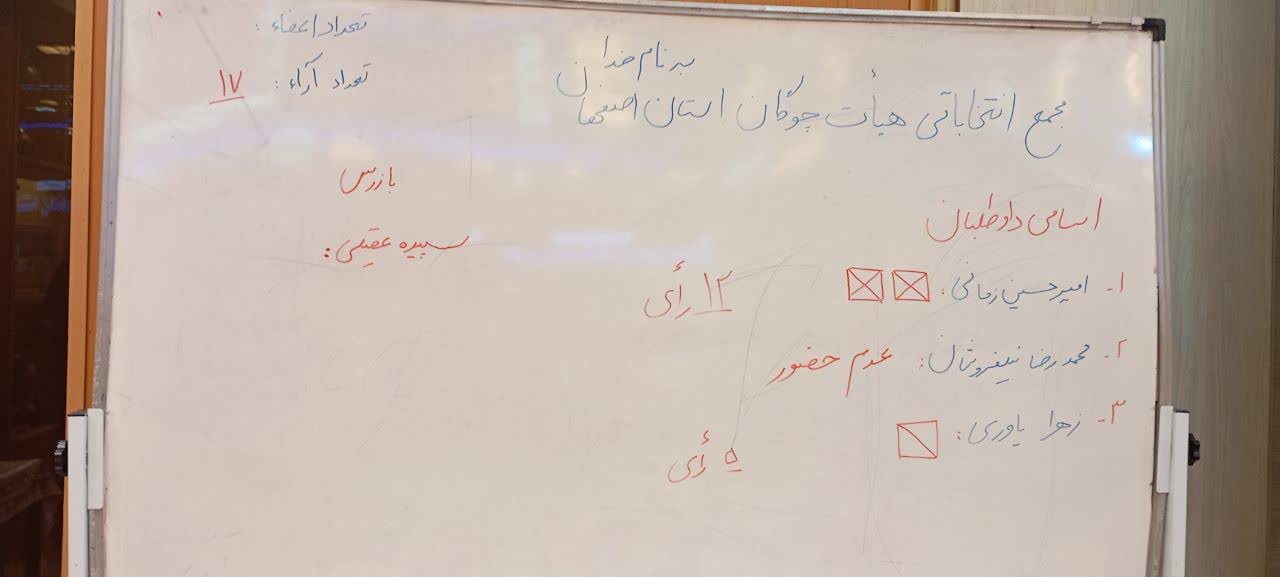 به نام خدا
مجمع انتخاباتی هیأت چوگان استان اصفهان
تعداد اعضاء :
تعداد آراء : ۱۷
اسامی داوطلبان
۱- امیرحسین زمانی : ۱۲ رأی
۲- محمدرضا نیلفروشان : عدم حضور
۳- زهرا یاوری : ۵ رأی
بازرس
سپیده عقیلی :